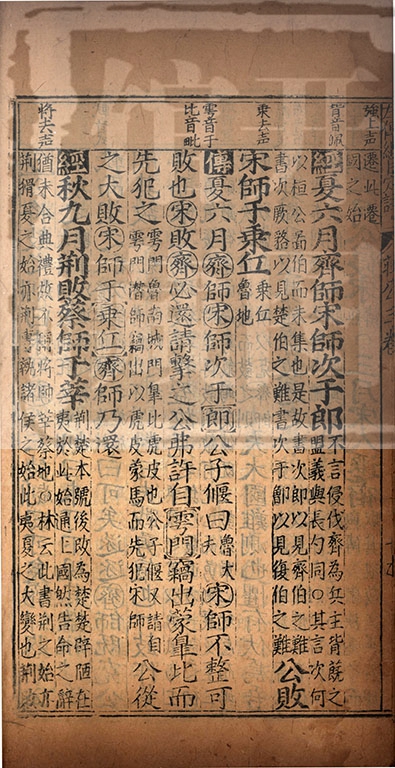 強上声
乘去声
雩音于
比音毗
將去声
經夏六月齊師宋師次于郎
不言侵伐齊為兵主背旣之
盟義與長勺同○其言次何
以桓公圖伯而未集也是故書次郎以見齊伯之難
書次厥貉以見楚伯之難書次于以見復伯之難
公敗
宋師于乘丘
乘丘
魯地
傳夏六月齊師宋師次于郎公子偃曰
魯大
夫
宋師不整可
敗也宋敗齊必還請擊之公弗許自雩門竊出蒙臯比而
先犯之
雩門魯南城門臯比虎皮也公子偃又請自
雩門潛師竊出以虎皮蒙馬而先犯宋師
公從
之大敗宋師于乘丘齊師乃還
經秋九月荆敗蔡師于莘
荆楚本號後改為楚楚辟陋在
夷於此始通上國然告命之辭
猶未合典禮故不稱將帥莘蔡地○林云此書荆之始亦
荆猾夏之始亦荆書敗諸侯之始此夷夏之大變也荆敗